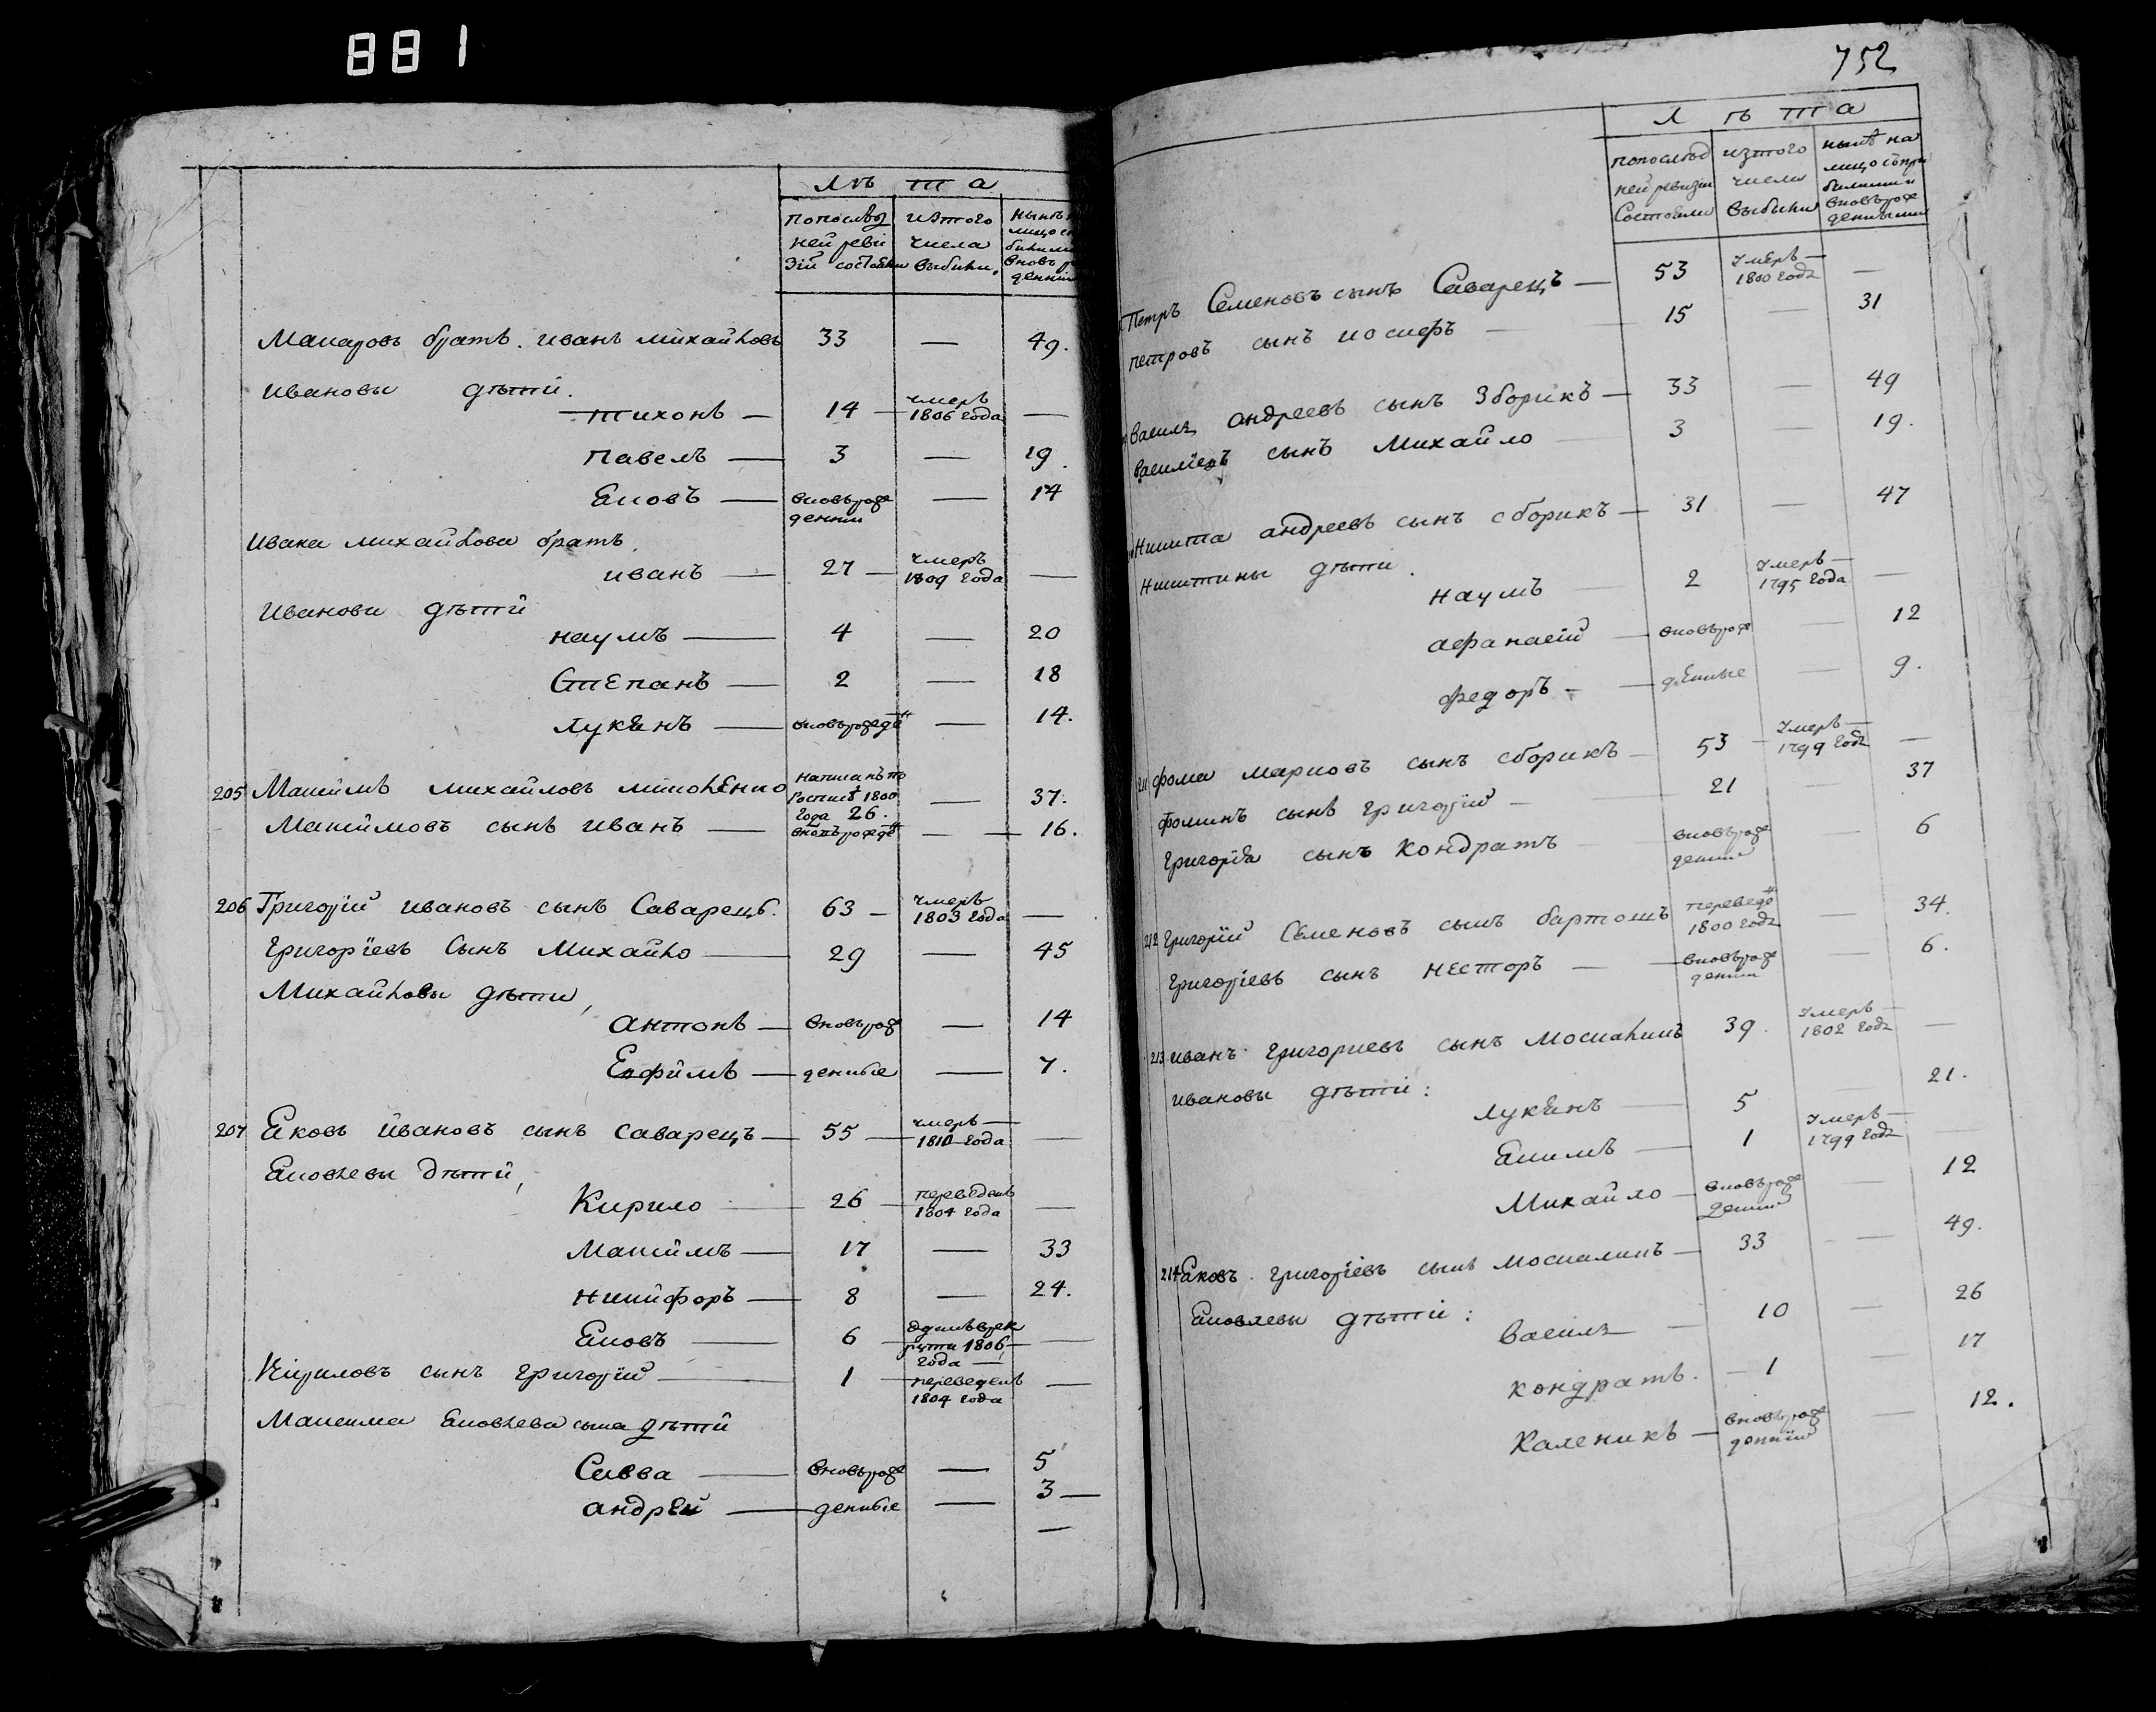 881
лѣта
попослѣд изтого нынѣ н
ней реви числа лицо съ
зїи состояли выбыли, вновь р
денним
Макаровъ братъ. иванъ михайловъ 33 — 49.
Ивановы дѣти.
тихонъ — 14 — умеръ 1806 года —
павелъ — 3 — 19.
Яковъ — вновьрож — 14
денни
Ивана михайлова братъ,
иванъ — 27 — умеръ 1809 года —
Иванови дѣти
наумъ — 4 — 20
Степанъ — 2 — 18
лукянъ — вновьрожде — 14.
205 Максимъ михайловъ — 37.
года 26.
Максимовъ сынъ иванъ — вновьрожде — — 16.
206 Григорій ивановъ сынъ Саварецъ. 63 — умеръ 1803 года —
григоріевъ Сынъ Михайло — 29 — 45
Михайловы дѣти,
антонъ — вновьрож — 14
Ефимъ — денные — 7.
207 Яковъ ивановъ сынъ саварецъ — 55 — умеръ — 1810 года —
Яковлевы дѣти,
Кирило — 26 — переведенъ 1804 года —
Максимъ — 17 — 33
никифоръ — 8 — 24.
Яковъ — 6 — 1806
года —
Кириловъ сынъ григорій — 1 — переведенъ —
1804 года
Максима Яковлева сына дѣти
Савва — вновьрож — 5
андрей — денные — 3 —
—
752
лѣта
попослѣд изтого нынѣ на
ней ревизіи числа лицо съпри
Состояли выбыли былыми
вновьрож
денными
Петръ Семеновъ сынъ Саварецъ — 53 умеръ — 1800 года —
петровъ сынъ иосифъ — 15 — 31
василь андреевъ сынъ Зборикъ — 33 — 49
васильевъ сынъ михайло — 3 — 19.
Никита андреевъ сынъ сборикъ — 31 — 47
никитины дѣти.
наумъ — 2 умеръ — 1795 года —
афанасій — вновьрож — 12
федоръ — — денные — 9.
211 фома марковъ сынъ сборикъ — 53 — умеръ — 1799 года —
фоминъ сынъ григорій — 21 — 37
григорія сынъ кондратъ — вновьрож — 6
денни
212 григорій Семеновъ сынъ бартошъ переведе — 34.
1800 года
григоріевъ сынъ несторъ — — вновьрож — 6.
денни
213 иванъ григориевъ сынъ москалишъ 39. умеръ — 1802 года —
ивановы дѣти:
лукянъ — 5 — 21.
Якимъ — 1 умеръ — 1799 года —
Михайло — вновьрож — 12
денни
214 Яковъ григоріевъ сынъ москалишъ — 33 — 49.
Яковлевы дѣти:
василь — 10 — 26
кондратъ. — 1 — 17
каленикъ — вновьрож — 12.
денни